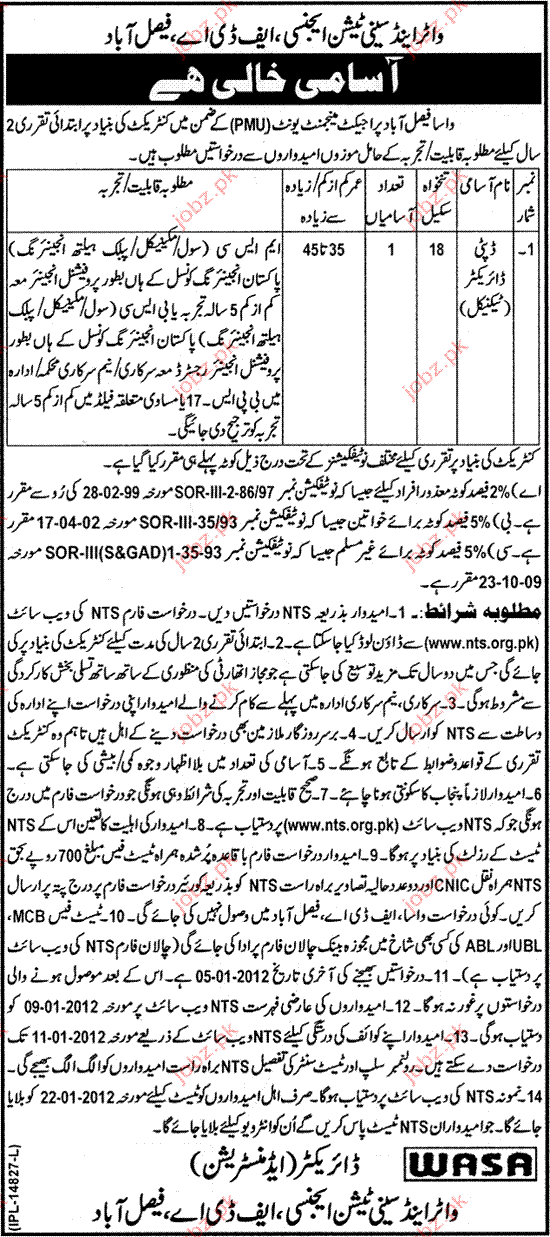 واٹر اینڈ سینی ٹیشن ایجنسی، ایف ڈی اے، فیصل آباد
آسامی خالی ہے
واسا فیصل آباد پراجیکٹ مینجمنٹ یونٹ (PMU) کے ضمن میں کنٹریکٹ کی بنیاد پر ابتدائی تقرری 2
سال کیلئے مطلوبہ قابلیت/تجربہ کے حامل موزوں امیدواروں سے درخواستیں مطلوب ہیں۔
نمبر شمار	نام آسامی	تنخواہ سکیل	تعداد آسامیاں	عمر کم از کم/زیادہ سے زیادہ	مطلوبہ قابلیت/تجربہ
1۔	ڈپٹی ڈائریکٹر (ٹیکنیکل)	18	1	35 تا 45	ایم ایس سی (سول/مکینیکل/پبلک ہیلتھ انجینئرنگ)
پاکستان انجینئرنگ کونسل کے ہاں بطور پروفیشنل انجینئر معہ
کم از کم 5 سالہ تجربہ یا بی ایس سی (سول/مکینیکل/پبلک
ہیلتھ انجینئرنگ) پاکستان انجینئرنگ کونسل کے ہاں بطور
پروفیشنل انجینئر رجسٹرڈ معہ سرکاری/نیم سرکاری محکمہ/ادارہ
میں بی پی ایس۔17 یا مساوی متعلقہ فیلڈ میں کم از کم 5 سالہ
تجربہ کو ترجیح دی جائیگی۔
کنٹریکٹ کی بنیاد پر تقرری کیلئے مختلف نوٹیفکیشنز کے تحت درج ذیل کوٹہ پہلے ہی مقرر کیا گیا ہے۔
اے) 2% فیصد کوٹہ معذور افراد کیلئے جیسا کہ نوٹیفکیشن نمبر SOR-III-2-86/97 مورخہ 28-02-99 کی رُو سے مقرر
ہے۔ بی) 5% فیصد کوٹہ برائے خواتین جیسا کہ نوٹیفکیشن نمبر SOR-III-35/93 مورخہ 17-04-02 مقرر
ہے۔ سی) 5% فیصد کوٹہ برائے غیر مسلم جیسا کہ نوٹیفکیشن نمبر SOR-III(S&GAD)1-35-93 مورخہ
23-10-09 مقرر ہے۔
مطلوبہ شرائط:۔ 1۔ امیدوار بذریعہ NTS درخواستیں دیں۔ درخواست فارم NTS کی ویب سائٹ
(www.nts.org.pk) سے ڈاؤن لوڈ کیا جاسکتا ہے۔ 2۔ ابتدائی تقرری 2 سال کی مدت کیلئے کنٹریکٹ کی بنیاد پر کی
جائے گی جس میں دو سال تک مزید توسیع کی جاسکتی ہے جو مجاز اتھارٹی کی منظوری کے ساتھ ساتھ تسلی بخش کارکردگی
سے مشروط ہوگی۔ 3۔ سرکاری، نیم سرکاری ادارہ میں پہلے سے کام کرنے والے امیدوار اپنی درخواست اپنے ادارہ کی
وساطت سے NTS کو ارسال کریں۔ 4۔ برسر روزگار ملازمین بھی درخواست دینے کے اہل ہیں تاہم وہ کنٹریکٹ
تقرری کے قواعد و ضوابط کے تابع ہونگے۔ 5۔ آسامی کی تعداد میں بلا اظہار وجوہ کمی/بیشی کی جاسکتی ہے۔
6۔ امیدوار لازماً پنجاب کا سکونتی ہونا چاہیے۔ 7۔ صحیح قابلیت اور تجربہ کی شرائط وہی ہونگی جو درخواست فارم میں درج
ہونگی جو کہ NTS ویب سائٹ (www.nts.org.pk) پر دستیاب ہے۔ 8۔ امیدوار کی اہلیت کا تعین اس کے NTS
ٹیسٹ کے رزلٹ کی بنیاد پر ہوگا۔ 9۔ امیدوار درخواست فارم باقاعدہ پُر شدہ ہمراہ ٹیسٹ فیس مبلغ 700 روپے بحق
NTS ہمراہ نقل CNIC اور دو عدد حالیہ تصاویر براہ راست NTS کو بذریعہ کوریئر درخواست فارم پر درج پتہ پر ارسال
کریں۔ کوئی درخواست واسا، ایف ڈی اے، فیصل آباد میں وصول نہیں کی جائے گی۔ 10۔ ٹیسٹ فیس MCB،
UBL اور ABL کی کسی بھی شاخ میں مجوزہ بینک چالان فارم پر ادا کی جائے گی (چالان فارم NTS کی ویب سائٹ
پر دستیاب ہے)۔ 11۔ درخواستیں بھیجنے کی آخری تاریخ 05-01-2012 ہے۔ اس کے بعد موصول ہونے والی
درخواستوں پر غور نہ ہوگا۔ 12۔ امیدواروں کی عارضی فہرست NTS ویب سائٹ پر مورخہ 09-01-2012 کو
دستیاب ہوگی۔ 13۔ امیدوار اپنے کوائف کی درستگی کیلئے NTS ویب سائٹ کے ذریعے مورخہ 11-01-2012 تک
درخواست دے سکتے ہیں۔ رولنمبر سلپ اور ٹیسٹ سنٹر کی تفصیل NTS براہ راست امیدواروں کو الگ الگ بھیجے گی۔
14۔ نمونہ NTS کی ویب سائٹ پر دستیاب ہوگا۔ صرف اہل امیدواروں کو ٹیسٹ کیلئے مورخہ 22-01-2012 کو بلایا
جائے گا۔ جو امیدواران NTS ٹیسٹ پاس کریں گے اُن کو انٹرویو کیلئے بلایا جائے گا۔
WASA
ڈائریکٹر (ایڈمنسٹریشن)
واٹر اینڈ سینی ٹیشن ایجنسی، ایف ڈی اے، فیصل آباد
(IPL-14827-L)
jobz.pk